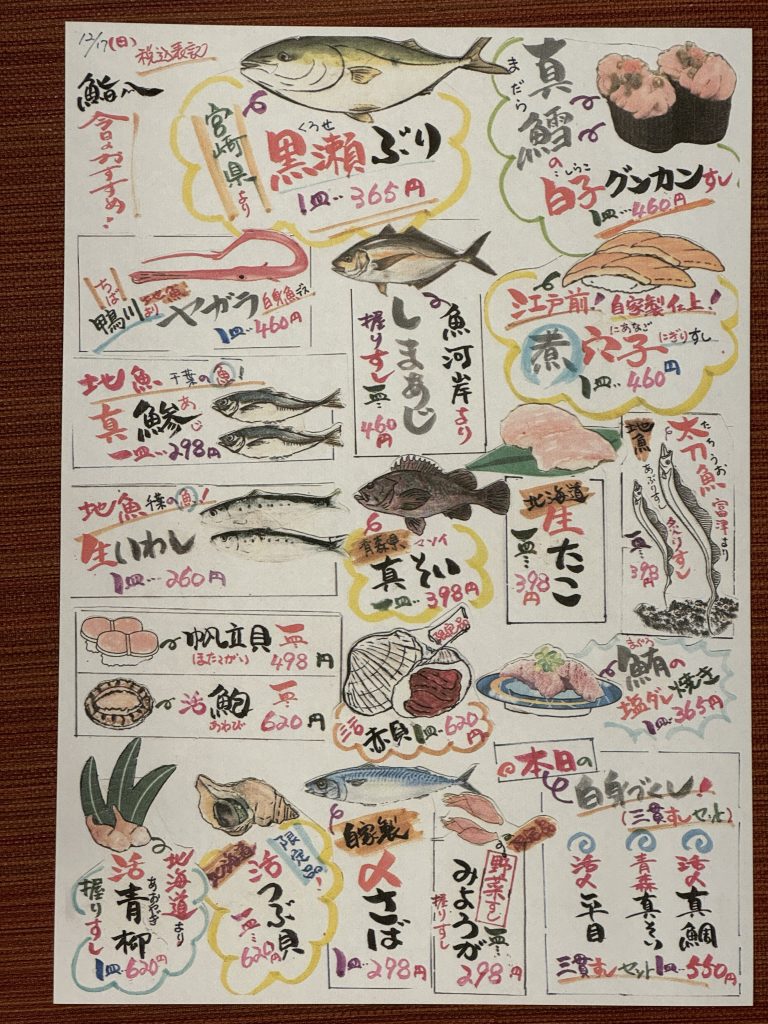 12/17(日)
税込表記
鮨八
今日のおすすめ!
宮崎県より
くろせ
黒瀬ぶり
1皿…365円
まだら
真鱈の
しらこ
白子グンカンすし
1皿…460円
ちば
鴨川より
地魚
ヤガラ
白身魚デス
1皿…460円
魚河岸より
しまあじ
握りすし一皿…460円
江戸前!自家製仕上!
にあなご
煮穴子
にぎりすし
1皿…460円
地魚
千葉の魚!
あじ
真鰺
一皿…298円
地魚
千葉の魚!
生いわし
1皿…260円
青森県
マゾイ
真そい
一皿…398円
北海道
生たこ
一皿…398円
地魚
たちうお
太刀魚
富津より
あぶりすし
炙りすし
一皿…398円
帆立貝
ほたてがい
一皿…498円
活鮑
あわび
一皿…620円
限定品
活赤貝1皿…620円
まぐろ
鮪の
塩ダレ焼き
1皿…365円
北海道より
活青柳
あおやぎ
握りすし
1皿…620円
北海道
限定品!
活つぶ貝
一皿…620円
自家製
〆さば
1皿…298円
限定品
野菜すし
みょうが
握りすし
一皿…298円
本日の
白身づくし!
(三貫すしセット)
活〆真鯛
青森真そい
活〆平目
三貫すしセット1皿…550円